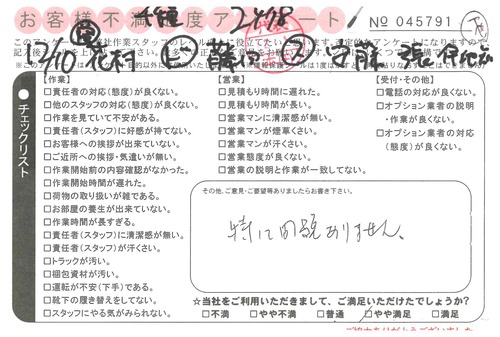 お客様不満足度アンケート
No 045791
チェックリスト
【作業】
□責任者の対応(態度)が良くない。
□他のスタッフの対応(態度)が良くない。
□作業を見ていて不安がある。
□責任者(スタッフ)に好感が持てない。
□お客様への挨拶が出来ていない。
□ご近所への挨拶・気遣いが無い。
□作業開始前の内容確認がなかった。
□作業開始時間が遅れた。
□荷物の取り扱いが雑である。
□お部屋の養生が出来ていない。
□作業時間が長すぎる。
□責任者(スタッフ)に清潔感が無い。
□責任者(スタッフ)が汗くさい。
□トラックが汚い。
□梱包資材が汚い。
□運転が不安(下手)である。
□靴下の履き替えをしてない。
□スタッフにやる気がみられない。
【営業】
□見積もり時間に遅れた。
□見積もり時間が長い。
□営業マンに清潔感が無い。
□営業マンが煙草くさい。
□営業マンが汗くさい。
□営業態度が良くない。
□営業の説明と作業が一致してない。
【受付・その他】
□電話の対応が良くない。
□オプション業者の説明
・作業が良くない。
□オプション業者の対応
(態度)が良くない。
その他、ご意見・ご要望等ありましたらお書き下さい。
特に問題ありません。
☆当社をご利用いただきまして、ご満足いただけたでしょうか?
□不満 □やや不満 □普通 □やや満足 □満足
ご協力ありがとうございました